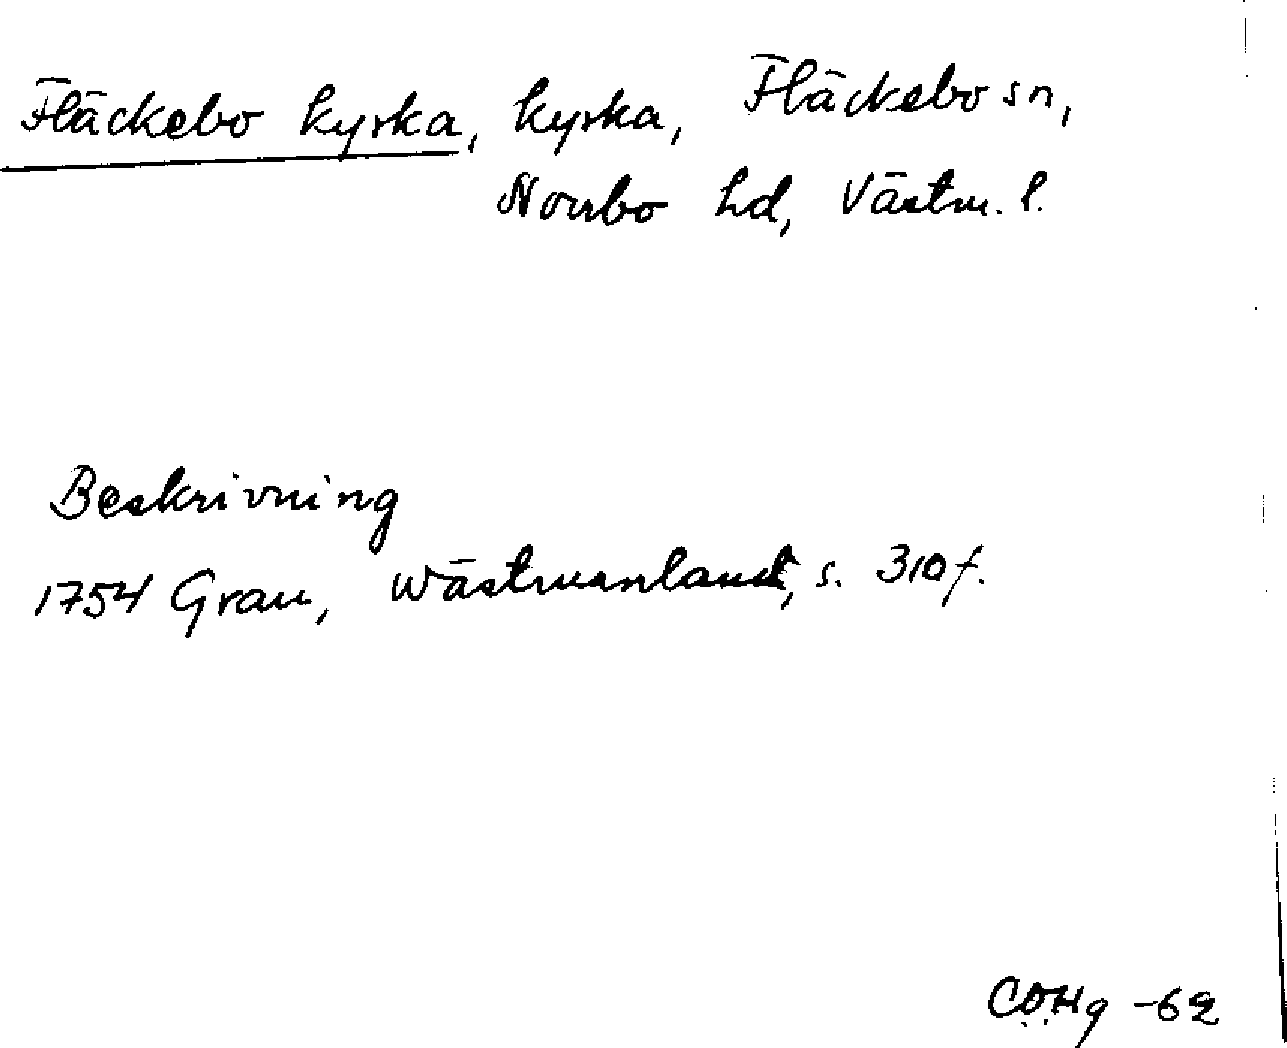 Fläckebo kyrka, kyrka, Fläckebo sn,
Norrbo hd, Västm. l.
Beskrivning
1754 Grau, Wästmanland, s. 310 f.
COHg -62